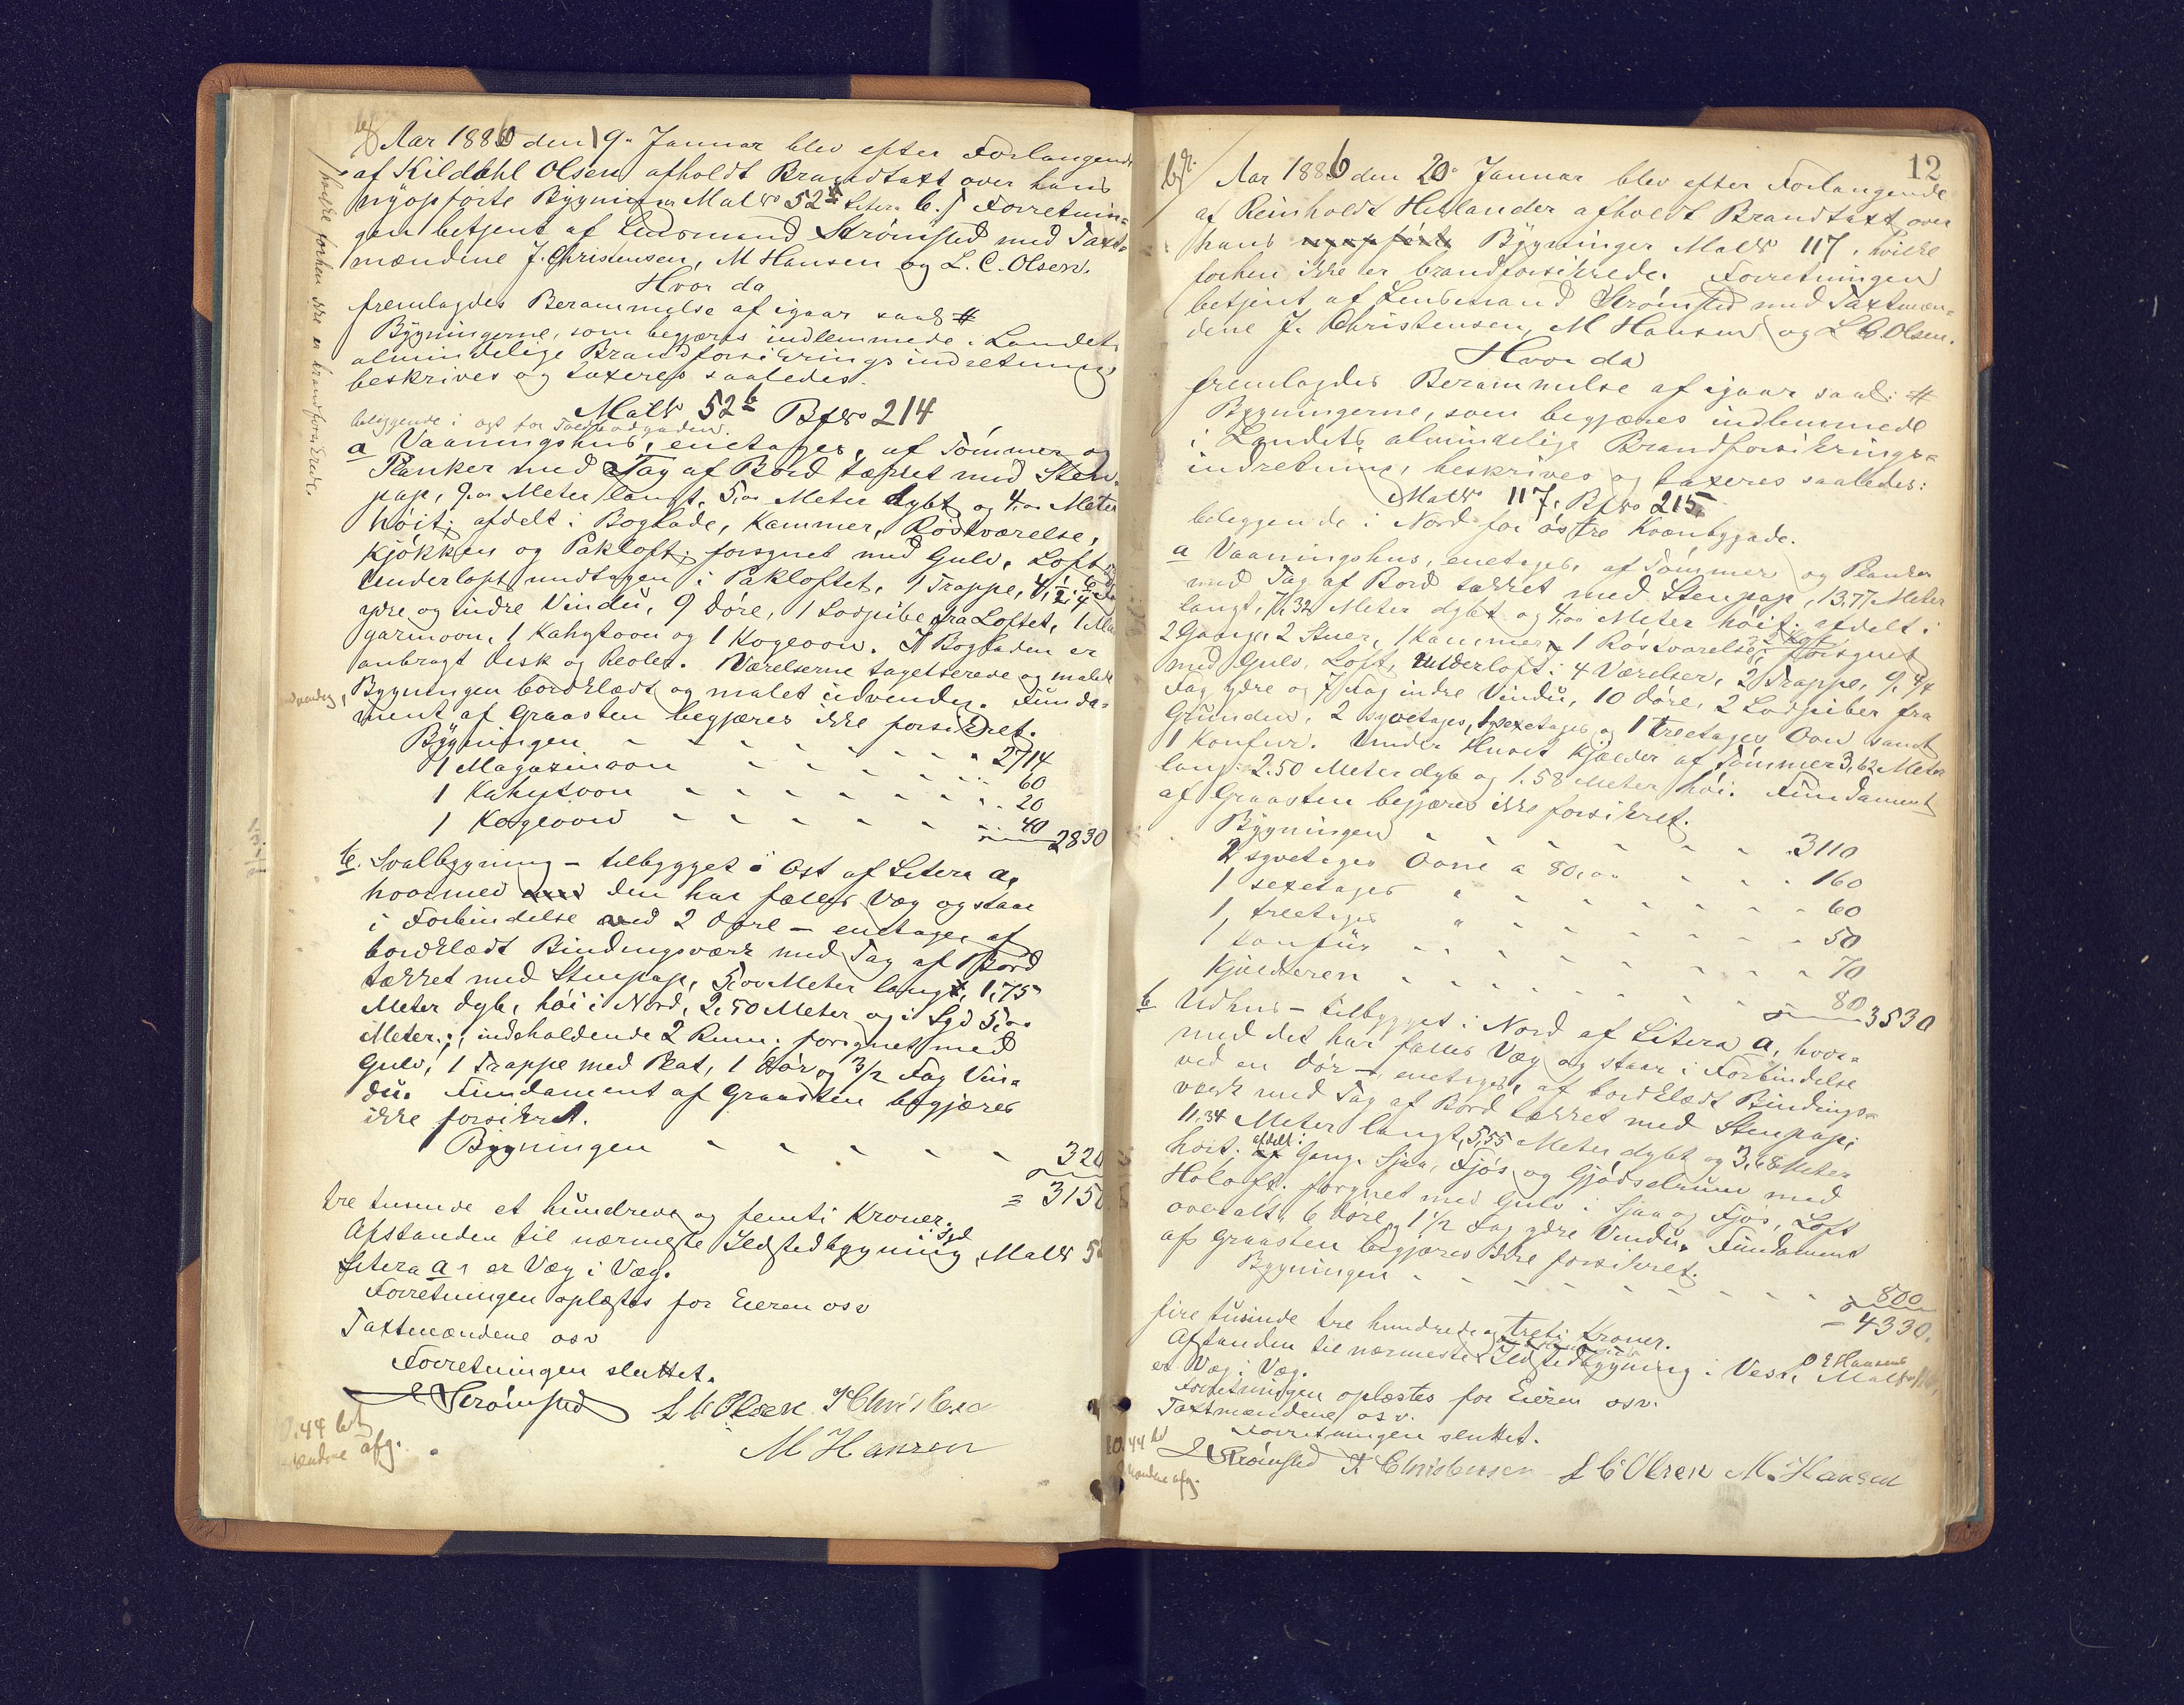 Aar 1886 den 19de Januar blev efter Forlangende
af Kildahl Olsen afholdt Brandtaxt over hans
nyopførte Bygning Mat No 52b Litera b. Forretnin-
gen betjent af Lensmand Strømsted med Taxt-
mændene J. Christensen, M Hansen og L. C. Olsen.
Hvor da
fremlagdes Berammelse af igaar saal. #
Bygningerne, som begjæres indlemmede i Landets
almindelige Brandforsikringsindretning
beskrives og taxeres saaledes.
hvilke forhen ikke er brandforsikrede
Mat No 52b Bf No 214
beliggende i og for Toldbodgaden.
a Vaaningshus, enetages, af Tømmer og
Planker med Tag af Bord tækket med Sten-
pap, 9,00 Meter langt, 5,00 Meter dybt og 4,00 Meter
høit; afdelt i Boglade, Kammer, Røstværelse,
Kjøkken og Pakloft; forsynet med Gulv, Loft
Underloft undtagen i Pakloftet, 1 Trappe,
ydre og indre Vindu, 9 Døre, 1 Lodpibe fra Loftet, 1 Ma
gazinoon, 1 Kahytoon og 1 Kogeoon. I Bogladen er
anbragt Disk og Reoler. Værelserne tapetserede og malede
Bygningen bordklædt og malet udvendig. Funda-
ment af Graasten begjæres ikke forsikret.
Bygningen 2714
1 Magazinoon 60
1 Kahytoon 20
1 Kogeoon 40 2830
b. Svalbygning - tilbygget i Øst af Litera a,
hvormed den har fælles Væg og staar
i Forbindelse ved 2 Døre - enetages af
bordklædt Bindingsværk med Tag af Bord
tækket med Stenpap, 5,00 Meter langt, 1,75
Meter dyb, høi i Nord, 2,50 Meter og i Syd 5,00
Meter; indeholdende 2 Rum. forsynet med
Gulv, 1 Trappe med Plat, 1 Dør og 3/2 Fag Vin-
du. Fundament af Graasten begjæres
ikke forsikret.
Bygningen 320
= 3150
tre tusinde et hundrede og femti Kroner.
Afstanden til nærmeste Ildstedbygning i Syd, Mat No 5
Litera a, er Væg i Væg.
Forretningen oplæstes for Eieren osv
Taxtmændene osv
Forretningen sluttet.
Strømsted L C Olsen J Christensen
M Hansen
44 bet
afg.
12
Aar 1886 den 20de Januar blev efter Forlangende
af Reinholdt Hellander afholdt Brandtaxt over
hans nyopførte Bygninger Mat No 117, hvilke
forhen ikke er brandforsikrede. Forretningen
betjent af Lensmand Strømsted med Taxtmæn-
dene J. Christensen, M Hansen og L C Olsen.
Hvor da
fremlagdes Berammelse af igaar saal: #
Bygningerne, som begjæres indlemmede
i Landets almindelige Brandforsikrings-
indretning, beskrives og taxeres saaledes:
Mat No 117, Bf No 215,
beliggende i Nord for østre Kvænbygade.
a Vaaningshus, enetages, af Tømmer og Planker
med Tag af Bord tækket med Stenpap, 13,77 Meter
langt, 7,32 Meter dybt og 4,00 Meter høit; afdelt i
2 Gange, 2 Stuer, 1 Kammer, 1 Røstværelse, forsynet
med Gulv, Loft, Underloft i 4 Værelser, 2 Trappe, 9,
Fag ydre og 7 Fag indre Vindu, 10 Døre, 2 Lodpiber fra
Grunden, 2 syvetages, 1 sexetages og 1 treetages Oon samt
1 Komfur. Under Huset Kjælder af Tømmer 3,62 Meter
lang, 2.50 Meter dyb og 1.58 Meter høi. Fundament
af Graasten begjæres ikke forsikret.
Bygningen 3110
2 syvetages Oone a 80,00 160
1 sexetages " 60
1, treetages " 50
1 Komfur 70
Kjælderen 80 3530
b Udhus - tilbygget i Nord af Litera a, hvor-
med det har fælles Væg og staar i Forbindelse
ved en Dør - enetages, af bordklædt Bindings-
værk med Tag af Bord tækket med Stenpap;
11,34 Meter langt, 5,55 Meter dybt og 3,68 Meter
høit. afdelt i Gang, Sjaa, Fjøs og Gjødselrum med
Høloft. forsynet med Gulv i Sjaa og Fjøs, Loft
overalt, 6 Døre, 1 1/2 Fag ydre Vindu. Fundament
af Graasten begjæres ikke forsikret.
Bygningen 800
= 4330.
fire tusinde tre hundrede og treti Kroner.
Afstanden til nærmeste Ildstedbygning i Vest, O E Hansens Mat No
er Væg i Væg.
Forretningen oplæstes for Eieren osv.
Taxtmændene osv.
Forretningen sluttet.
Strømsted J Christensen L C Olsen M. Hansen